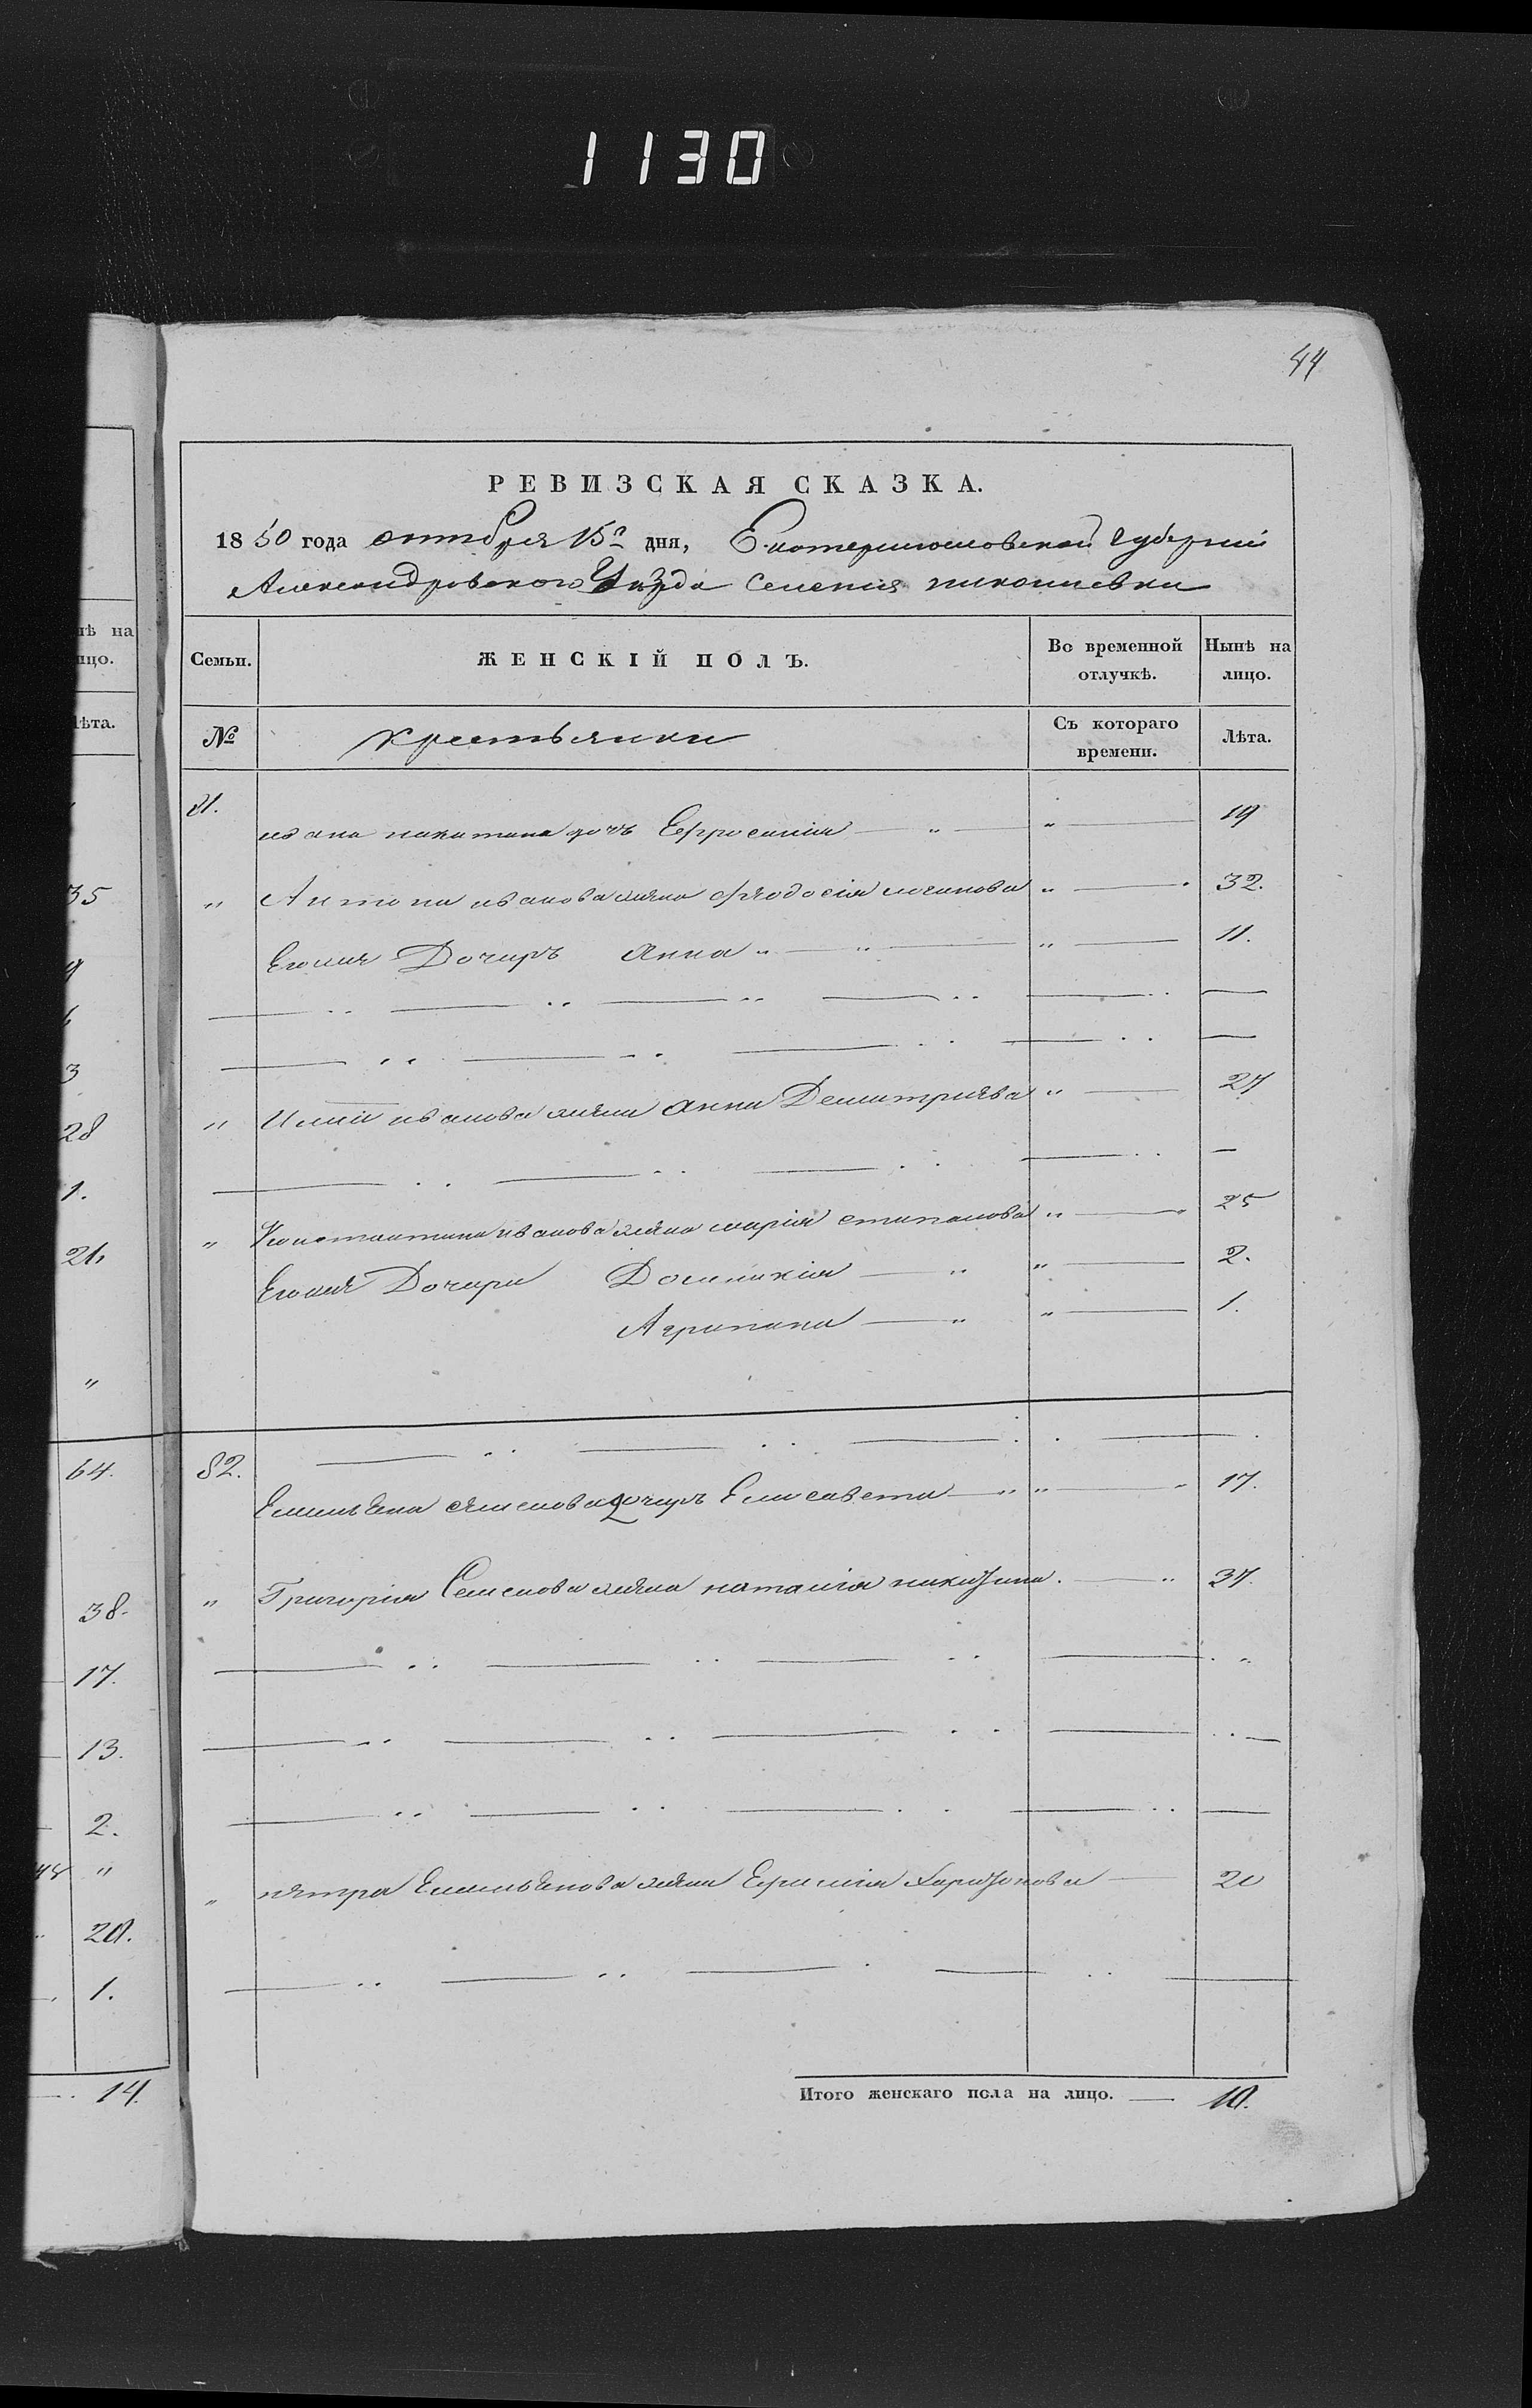 1130
44
РЕВИЗСКАЯ СКАЗКА.
1850 года октября 15го дня, Екатеринославской Губернии
Александровского Уѣзда Селения николаевки
Семьи. ЖЕНСКІЙ ПОЛЪ. Во временной отлучкѣ. Нынѣ на лицо.
№ крестьянки Съ котораго времени. Лѣта.
81.
ивана никитина дочь Ефросинія — " — " — 19
" Антона иванова жена Феодосія " — 32.
Егоже Дочерь Анна " — " — " — 11.
" Илии иванова жена анна Демитриева " — 27
" Константина иванова жена марія стипанова " — 25
Егоже Дочери Доминикія — " " — 2.
Агрипина — " " — 1.
82.
Емельяна семенова дочерь Елисавета — " " — 17.
" Григорія Семенова жена наталія — " 37.
" петра Емельянова жена Харитонова — 20
Итого женскаго пола на лицо. — 10.
нѣ на
лицо.
Лѣта.
35
9
3
28
1.
21.
"
64.
38.
17.
13.
2.
"
20.
1.
14.